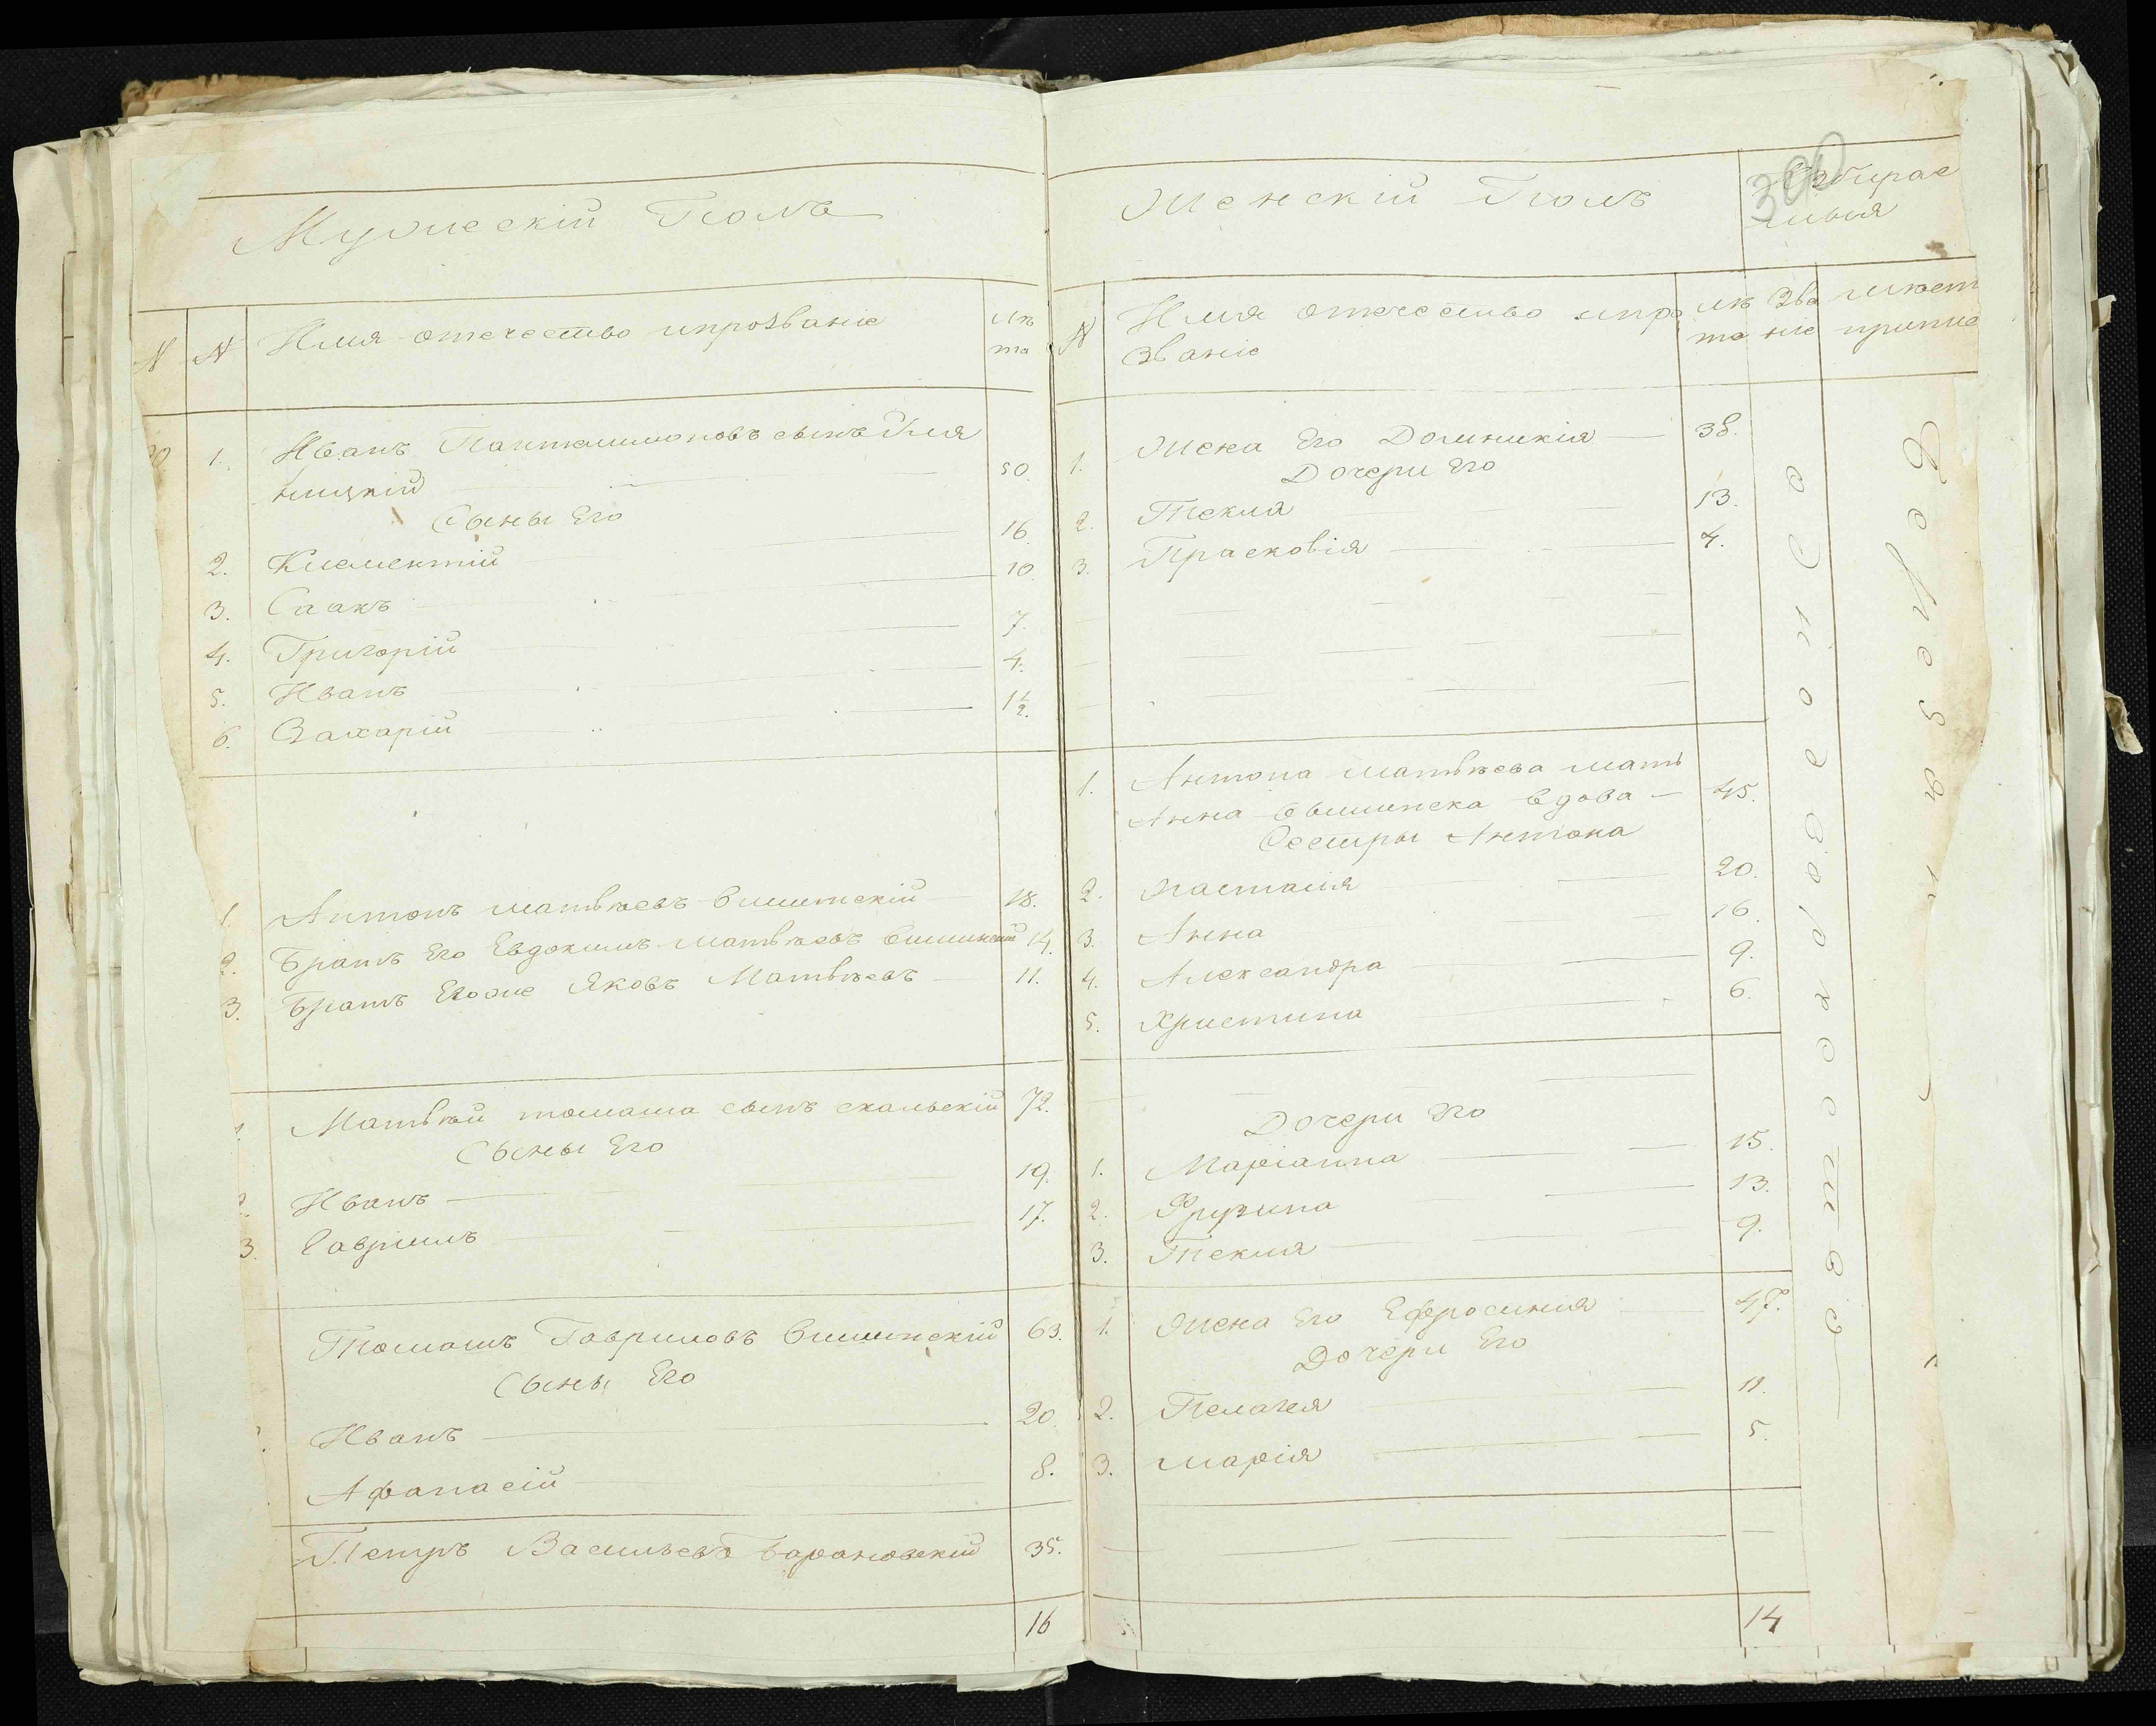 Мужескій Полъ
N
N
Имя отечество ипрозваніе
лѣ
та
1.
Иванъ Пантелимоновъ сынъ
ницкій
50.
Сыны Его
2.
Климентій
16.
3.
Саакъ
10.
4.
Григорій
7.
5.
Иванъ
4.
6.
Захарій
1½.
1.
Антонъ матвѣевъ вишинскій
18.
2.
Братъ Его Евдокимъ матвѣевъ вишинскій
14.
3.
Братъ Егоже Яковъ Матвѣевъ
11.
Матвѣй томаша сынъ скальскій
72.
Сыны Его
Иванъ
19.
3.
Гаврилъ
17.
Томашъ Гавриловъ вишинскій
63.
Сыны Его
Иванъ
20.
Афанасій
8.
Петръ Васильевъ барановскій
35.
16
Женскій Полъ
N
Имя отечество ипро
званіе
лѣ
та
зва
ніе
1.
Жена Его Домникія
38.
Дочери Его
2.
Текля
13.
3.
Прасковія
4.
1.
Антона матвѣева мать
Анна вишинска вдова
45.
Сестры Антона
2.
Настасія
20.
3.
Анна
16.
4.
Александра
9.
5.
Христина
6.
Дочери Его
1.
Маріанна
15.
2.
Фрузина
13.
3.
Текля
9.
1.
Жена Его Ефросинія
47.
Дочери Его
2.
Пелагея
11.
3.
марія
5.
14